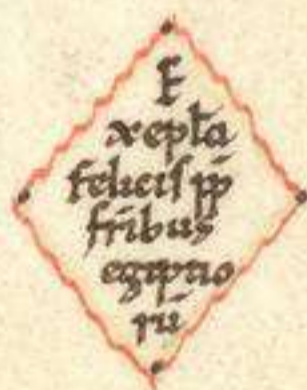 E
x epl̄a
felicis pp̄
fr̄ibus
egiptio
rū